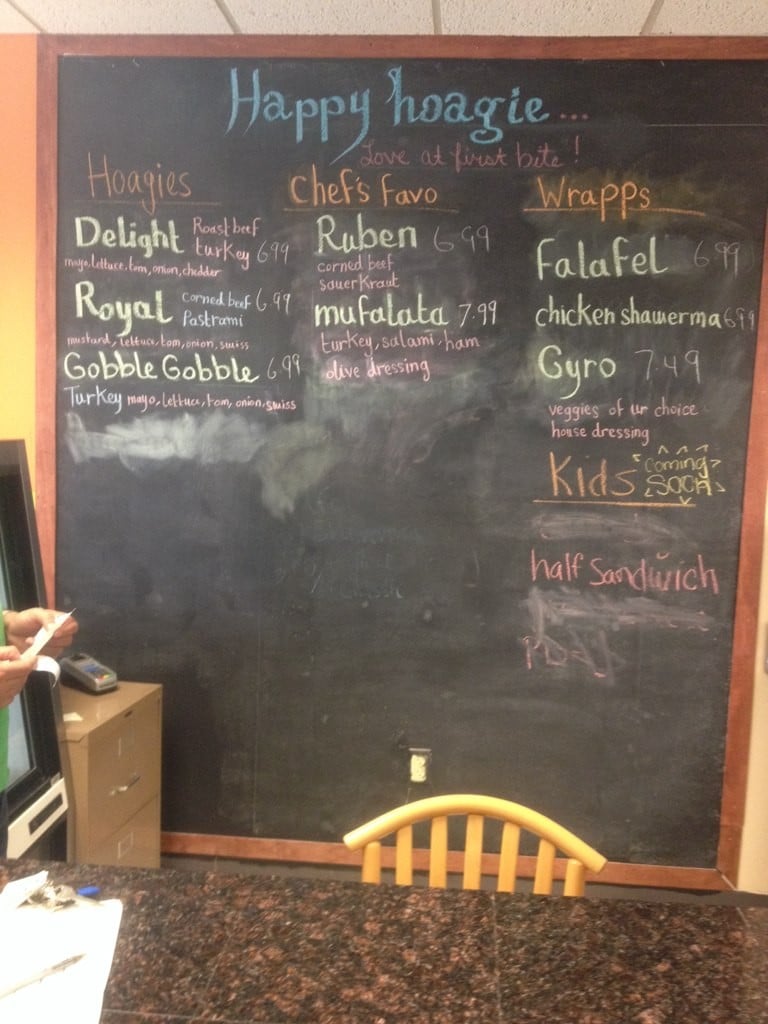 Happy hoagie...
Love at first bite!
Hoagies
Delight Roast beef
turkey 6.99
mayo, lettuce, tom, onion, chedder
Royal corned beef 6.99
Pastrami
mustard, lettuce, tom, onion, swiss
Gobble Gobble 6.99
Turkey mayo, lettuce, tom, onion, swiss
Chef's Favo
Ruben 6.99
corned beef
sauerkraut
mufalata 7.99
turkey, salami, ham
olive dressing
Wrapps
Falafel 6.99
chicken shawerma 6.99
Gyro 7.49
veggies of ur choice
house dressing
Kids coming
soon
half sandwich